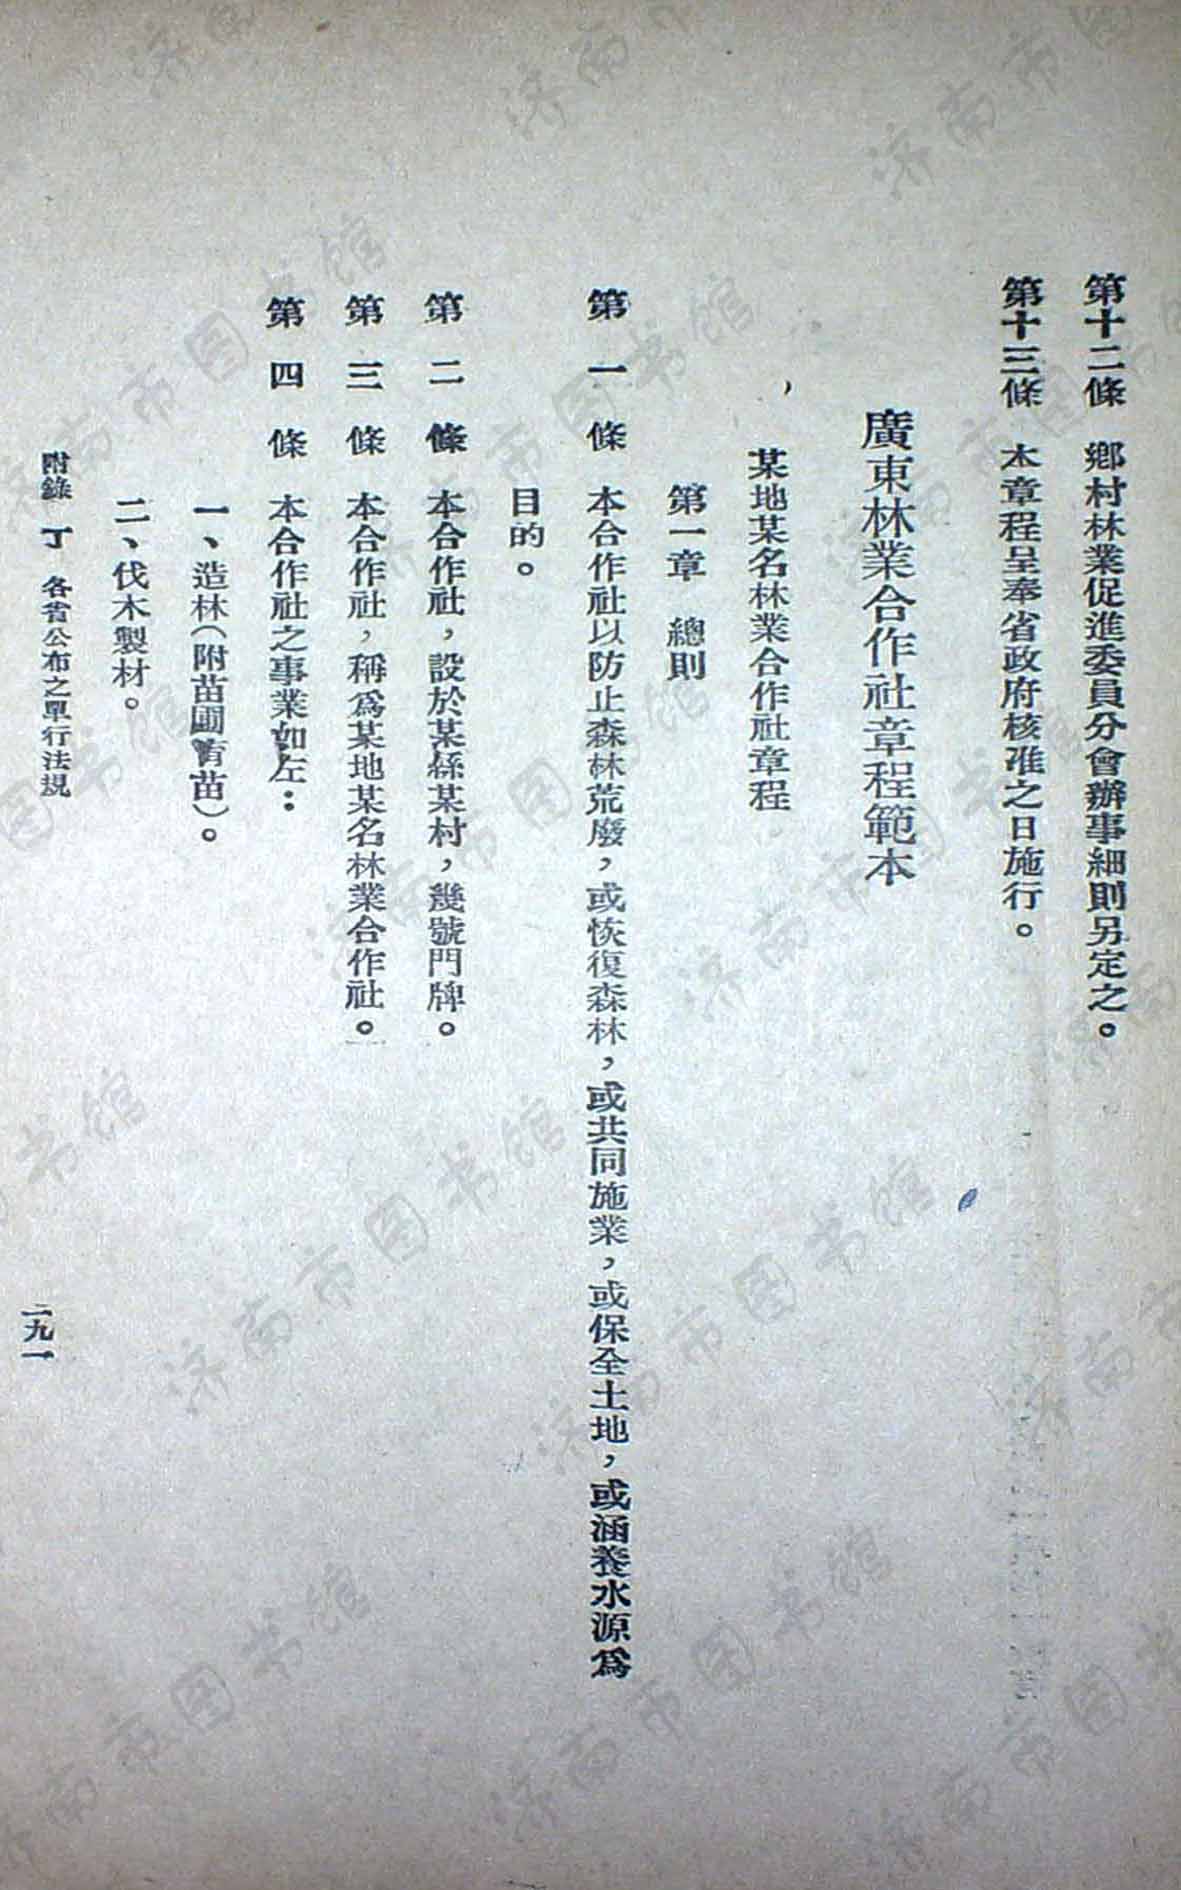 第十二條　鄉村林業促進委員分會辦事細則另定之。
第十三條　本章程呈奉省政府核准之日施行。
廣東林業合作社章程範本
某地某名林業合作社章程
第一章　總則
第一條　本合作社以防止森林荒廢，或恢復森林，或共同施業，或保全土地，或涵養水源爲
目的。
第二條　本合作社，設於某縣某村，幾號門牌。
第三條　本合作社，稱爲某地某名林業合作社。
第四條　本合作社之事業如左：
一、造林（附苗圃育苗）。
二、伐木製材。
附錄　丁　各省公布之單行法規
二九一
济南市图书馆